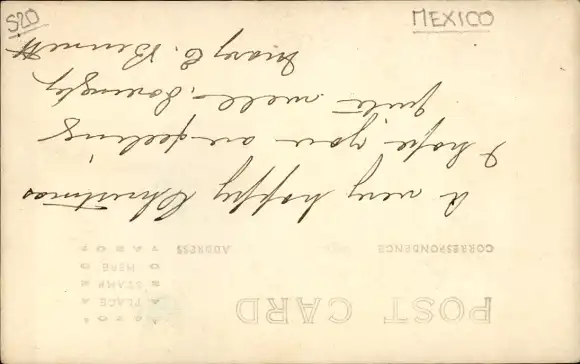 MEXICO
S20
POST CARD
CORRESPONDENCE
ADDRESS
PLACE
STAMP
HERE
A very happy Christmas
I hope you are feeling
quite well. Lovingly
Mary E. Bennett